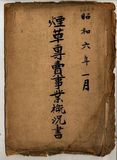 昭和六年一月
煙草專賣事業概況書